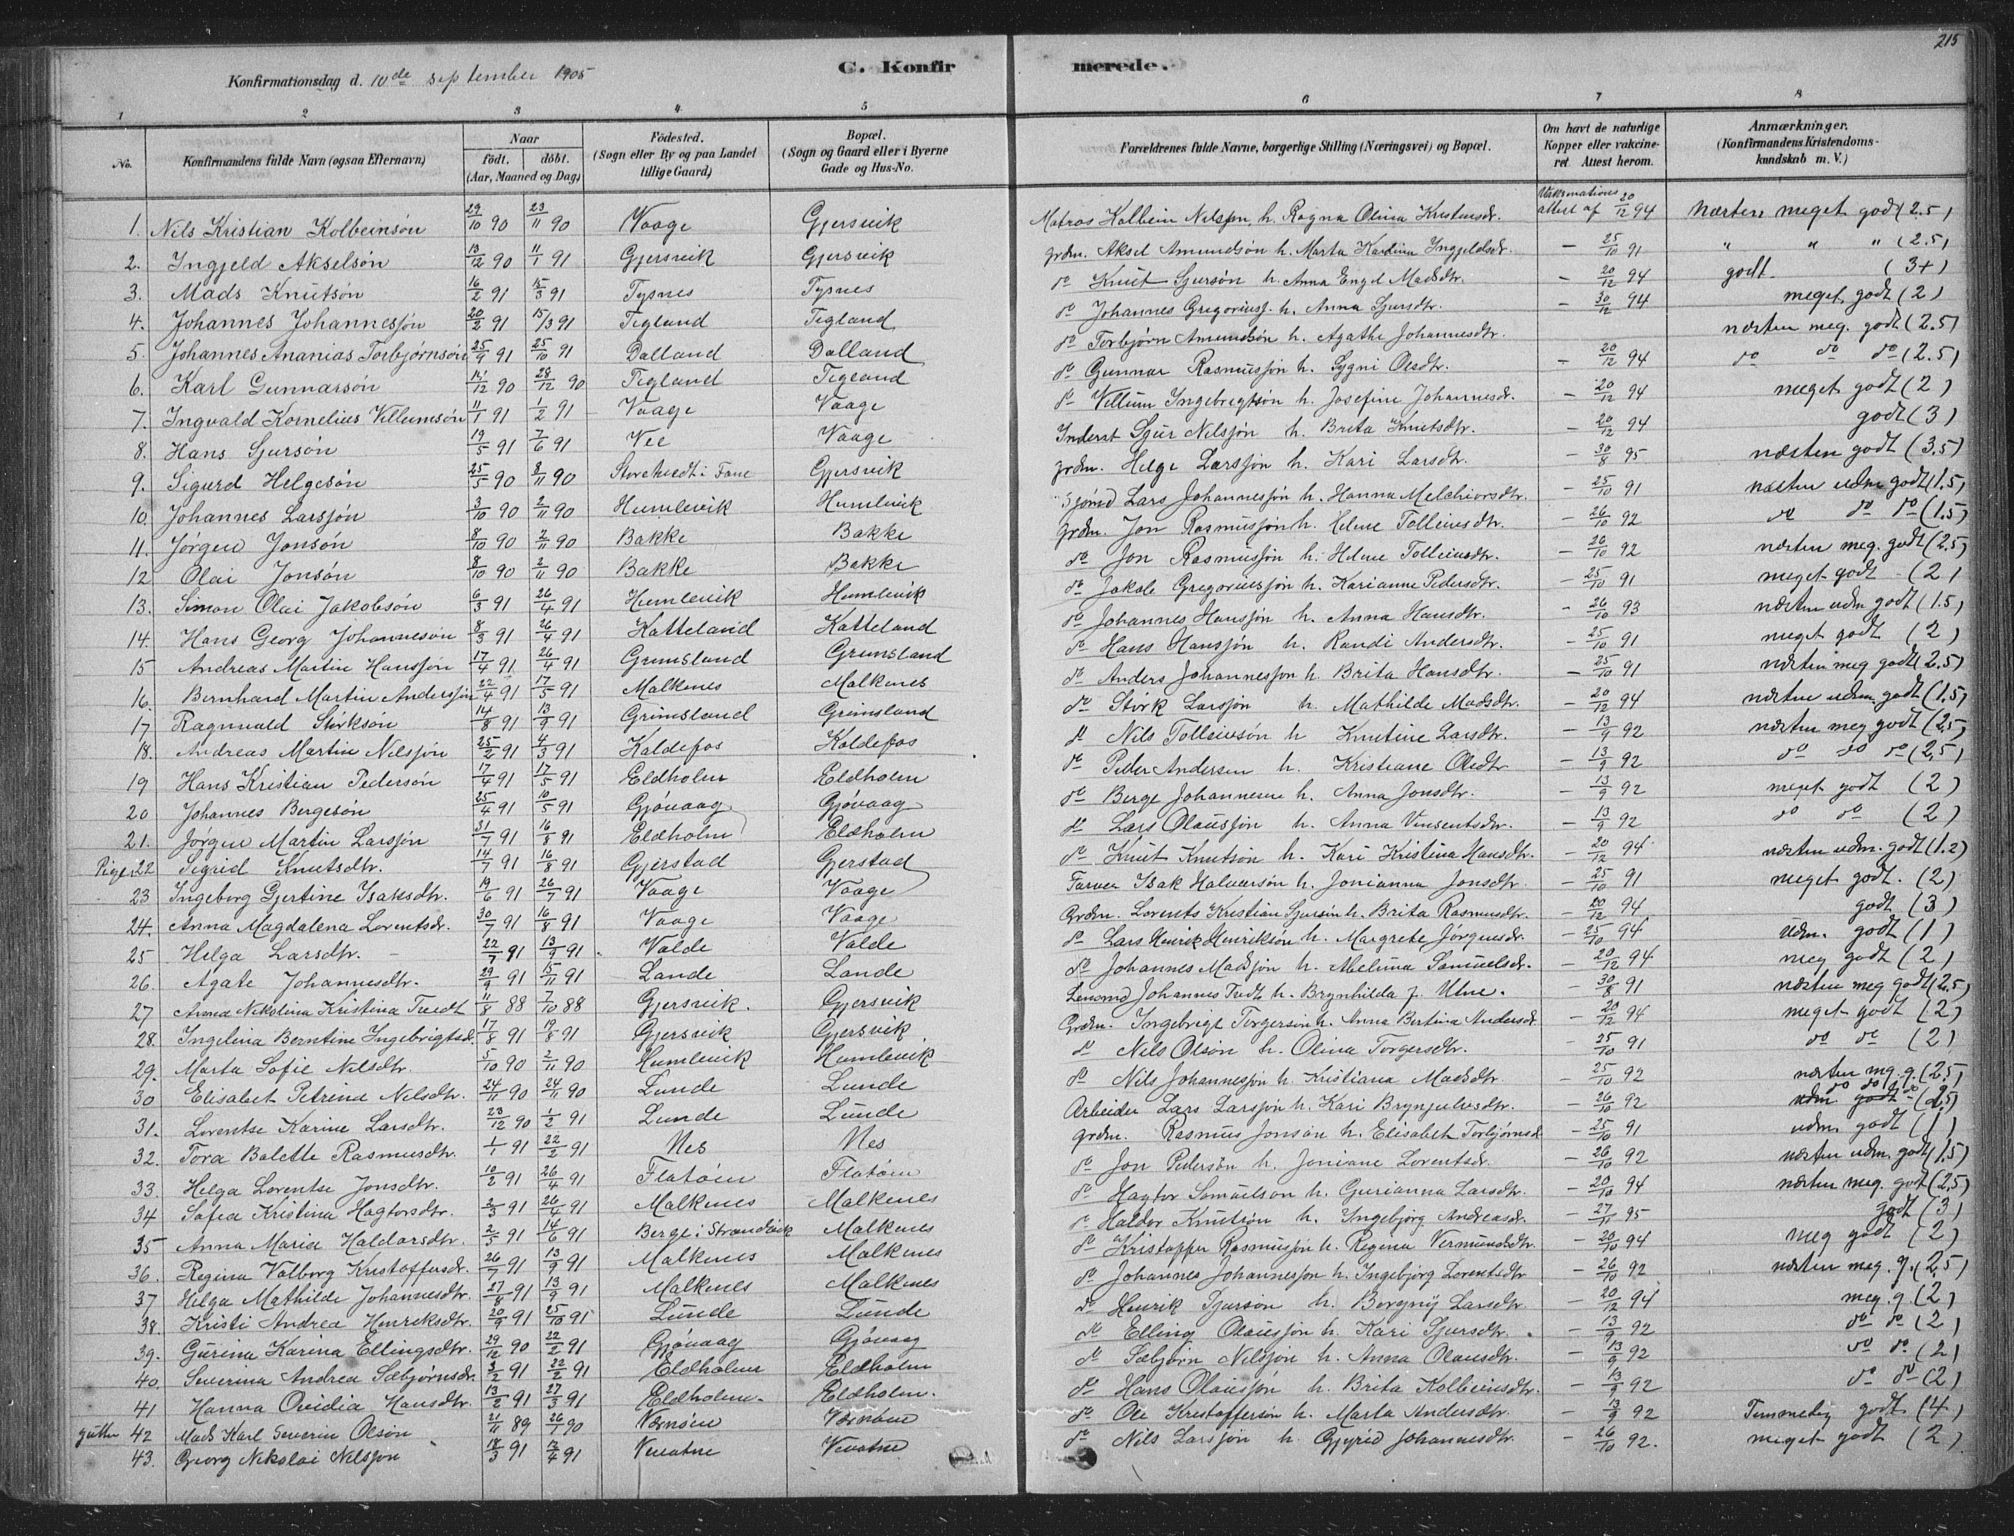 215
Konfirmationsdag d. 10de september 1905
C. Konfirmerede.
1 2 3 4 5 6 7 8
No. Konfirmandens fulde Navn (ogsaa Efternavn) Naar født. døbt. (Aar, Maaned og Dag) Fødested. (Sogn eller By og paa Landet tillige Gaard) Bopæl. (Sogn og Gaard eller i Byerne Gade og Hus-No. Forældrenes fulde Navne, borgerlige Stilling (Næringsvei) og Bopæl. Om havt de naturlige Kopper eller vakcineret. Attest herom. Anmærkninger. (Konfirmandens Kristendomskundskab m. V.)
1. Nils Kristian Kolbeinsøn 29/10 90 23/11 90 Vaage Gjersvik Matros Kolbein Nilssøn h. Ragna Olina Kristensdr. attest af 20/12 94 Næsten meget godt (2.5)
2. Ingjeld Akselsøn 13/12 90 11/1 91 Gjersvik Gjersvik grdm. Aksel Amundsøn h. Marta Karina Ingjeldsdr. – 25/10 91 " " " (2.5)
3. Mads Knutsøn 16/2 91 15/3 91 Tysnes Tysnes do Knut Sjursøn h. Anna Engel Madsdtr. – 20/12 94 godt (3+)
4. Johannes Johannessøn 20/2 91 15/3 91 Tegland Tegland do Johannes Gregoriusj. h. Anna Sjursdtr. – 30/12 94 meget godt (2)
5. Johannes Ananias Torbjørnsøn 25/9 91 25/10 91 Dalland Dalland do Torbjørn Amundsøn h. Agathe Johannesdtr. næsten meg. godt (2.5)
6. Karl Gunnarsøn 14/12 90 28/12 90 Tegland Tegland do Gunnar Rasmussøn h. Sygni Olsdtr. – 20/12 94 do do do (2.5)
7. Ingvald Kornelius Villumsøn 11/1 91 1/2 91 Vaage Vaage do Villum Ingebrigtsøn h. Josefine Johannesdr. – 20/12 94 meget godt (2)
8. Hans Sjursøn 19/5 91 7/6 91 Vee Vaage Inderst Sjur Nilssøn h. Brita Knutsdtr. – 20/12 94 godt (3)
9. Sigurd Helgesøn 25/5 90 8/11 90 Storetvedt i Fane Gjersvik grdm. Helge Larssøn h. Kari Larsdtr. – 30/8 95 næsten godt (3.5)
10. Johannes Larssøn 3/10 90 2/11 90 Humlevik Humlevik Lars Johannessøn h. Hanna Melchiorsdtr. – 25/10 91 næsten udm godt (1.5)
11. Jørgen Jonsøn 8/10 90 2/11 90 Bakke Bakke grdm. Jon Rasmussøn h. Helene Tolleivsdtr. – 26/10 92 do do do (1.5)
12 Olai Jonsøn 8/10 90 2/11 90 Bakke Bakke do Jon Rasmussøn h. Helene Tolleivsdtr. – 26/10 92 næsten meg. godt (2.5)
13. Simon Olai Jakobsøn 6/3 91 26/4 91 Humlevik Humlevik do Jakob Gregoriussøn h. Karianne Pedersdtr. – 25/10 91 meget godt (2)
14. Hans Georg Johannesøn 8/3 91 26/4 91 Katteland Katteland do Johannes Hanssøn h. Anna Hansdtr. – 26/10 93 næsten udm godt (1.5)
15 Andreas Martin Hanssøn 17/4 91 26/4 91 Grimsland Grimsland do Hans Hanssøn h. Randi Andersdtr. – 25/10 91 meget godt (2)
16. Bernhard Martin Anderssøn 22/4 91 17/5 91 Malkenes Malkenes do Anders Johannessøn h. Brita Hansdtr. – 25/10 91 næsten meg godt (2.5)
17 Ragnvald Størksøn 14/8 91 13/9 91 Grimsland Grimsland do Størk Larssøn h. Mathilde Madsdtr. – 20/12 94 næsten udm. godt (1.5)
18. Andreas Martin Nilssøn 25/2 91 4/3 91 Koldefos Koldefos do Nils Tolleivsøn h. Knutine Larsdtr. – 13/9 92 næsten meg godt (2.5)
19 Hans Kristian Pedersøn 17/4 91 17/5 91 Eldholm Eldholm do Peder Andersen h. Kristiane Olsdtr. – 13/9 92 do do do (2.5)
20 Johannes Bergesøn 25/4 91 10/5 91 Gjøvaag Gjøvaag do Berge Johannesen h. Anna Jonsdtr. – 13/9 92 meget godt (2)
21. Jørgen Martin Larssøn 31/7 91 16/8 91 Eldholm Eldholm do Lars Olaussøn h. Anna Vinsentsdr. – 13/9 92 do do (2)
Piger 22 Sigrid Knutsdtr. 14/7 91 16/8 91 Gjerstad Gjerstad do Knut Knutsøn h. Kari Kristina Hansdtr. – 20/12 94 næsten udm. godt (1.2)
23 Ingeborg Gjertine Isaksdtr. 19/6 91 26/7 91 Vaage Vaage Farver Isak Halvorsøn h. Jonianna Jonsdtr. – 25/10 91 meget godt. (2)
24. Anna Magdalena Lorentsdr. 30/7 91 16/8 91 Vaage Vaage Grdm. Lorents Kristian Sjursen h. Brita Rasmusdtr. – 20/12 94 godt (3)
25 Helga Larsdtr. 22/7 91 13/9 91 Valde Valde do Lars Henrik Henriksøn h. Margrete Jørgensdr. – 25/10 94 Udm. godt (1)
26. Agate Johannesdtr. 29/9 91 15/11 91 Lande Lande do Johannes Madssøn h. Melina Samuelsdr. – 20/12 94 meg godt (2)
27 Anna Nikolina Kristina Tvedt 11/8 88 7/10 88 Gjersvik. Gjersvik Lensmd Johannes Tvedt h. Brynhilda f. Utne. – 30/8 91 næsten meg godt (2.5)
28. Ingelina Berntine Ingebrigtsd. 17/8 91 19/8 91 Gjersvik Gjersvik Grdm. Ingebrigt Torgersøn h. Anna Bertina Andersd – 20/12 94 meget godt (2)
29. Marta Sofie Nilsdtr. 5/10 90 2/11 90 Humlevik Humlevik do Nils Olsøn h. Olina Torgersdtr. – 25/10 91 do do (2)
30 Elisabet Petrina Nilsdtr. 24/11 90 24/11 90 Lunde Lunde do Nils Johannessøn h. Kristiana Madsdtr. – 25/10 92 næsten mg. g. (2.5)
31. Lorentse Karine Larsdtr. 23/12 90 1/2 91 Lunde Lunde Arbeider Lars Larssøn h. Kari Brynjulvsdtr. – 26/10 92 do do do (2.5)
32. Tora Bolette Rasmusdtr. 1/1 91 22/2 91 Nes Nes grdm. Rasmus Jonsøn h. Elisabet Torbjørnsd – 25/10 91 udm. godt (1)
33. Helga Lorentse Jonsdtr. 10/2 91 26/4 91 Flatøen Flatøen do Jon Pedersøn h. Joniane Lorentsdr. – 26/10 92 næsten udm. godt (1.5)
34 Sofia Kristina Hagtorsdtr. 2/3 91 26/4 91 Malkenes Malkenes do Hagtor Samuelson h. Gurianna Larsdtr. – 20/10 94 næsten meg. got (2.5)
35 Anna Maria Haldorsdtr. 2/5 91 14/6 91 Berge i Strandvik Malkenes do Haldor Knutsøn h. Ingebjørg Andreasdr. – 27/11 95 godt (3)
36. Regina Valborg Kristoffersdr. 26/7 91 13/9 91 Malkenes Malkenes do Kristoffer Rasmussøn h. Regina Vermundsdtr. – 20/10 94 meg godt (2)
37 Helga Mathilde Johannesdtr. 27/8 91 13/9 91 Malkenes Malkenes do Johannes Johannessøn h. Ingebjørg Lorentsdtr – 26/10 92 næsten meg. g. (2.5)
38. Kristi Andrea Henriksdtr. 20/9 91 25/10 91 Lunde Lunde do Henrik Sjursøn h. Borgny Larsdtr. – 20/12 94 meg. g (2)
39. Gurina Karina Ellingsdtr. 29/12 90 22/2 91 Gjøvaag Gjøvaag do Elling Olaussøn h. Kari Sjursdtr. – 13/9 92 do do (2)
40. Severina Andrea Sæbjørnsdr. 3/2 91 22/2 91 Eldholm Eldholm do Sæbjørn Nilssøn h. Anna Olausdtr. – 13/9 92 do do (2)
41 Hanna Ovidia Hansdtr. 13/2 91 27/3 91 Eldholm. Eldholm. do Hans Olaussøn h. Brita Kolbeinsdtr. – 13/9 92 do do (2)
gutter 42 Mads Karl Severin Olsøn 21/11 89 26/1 90 Værnøen Værnøen do Ole Kristoffersøn h. Marta Andersdtr. – 13/9 92 Temmelig godt (4)
43. Georg Nikolai Nilssøn 18/3 91 12/4 91 Vevatne Vevatne do Nils Larssøn h. Gjyrid Johannesdtr. – 26/10 92. meget godt (2)